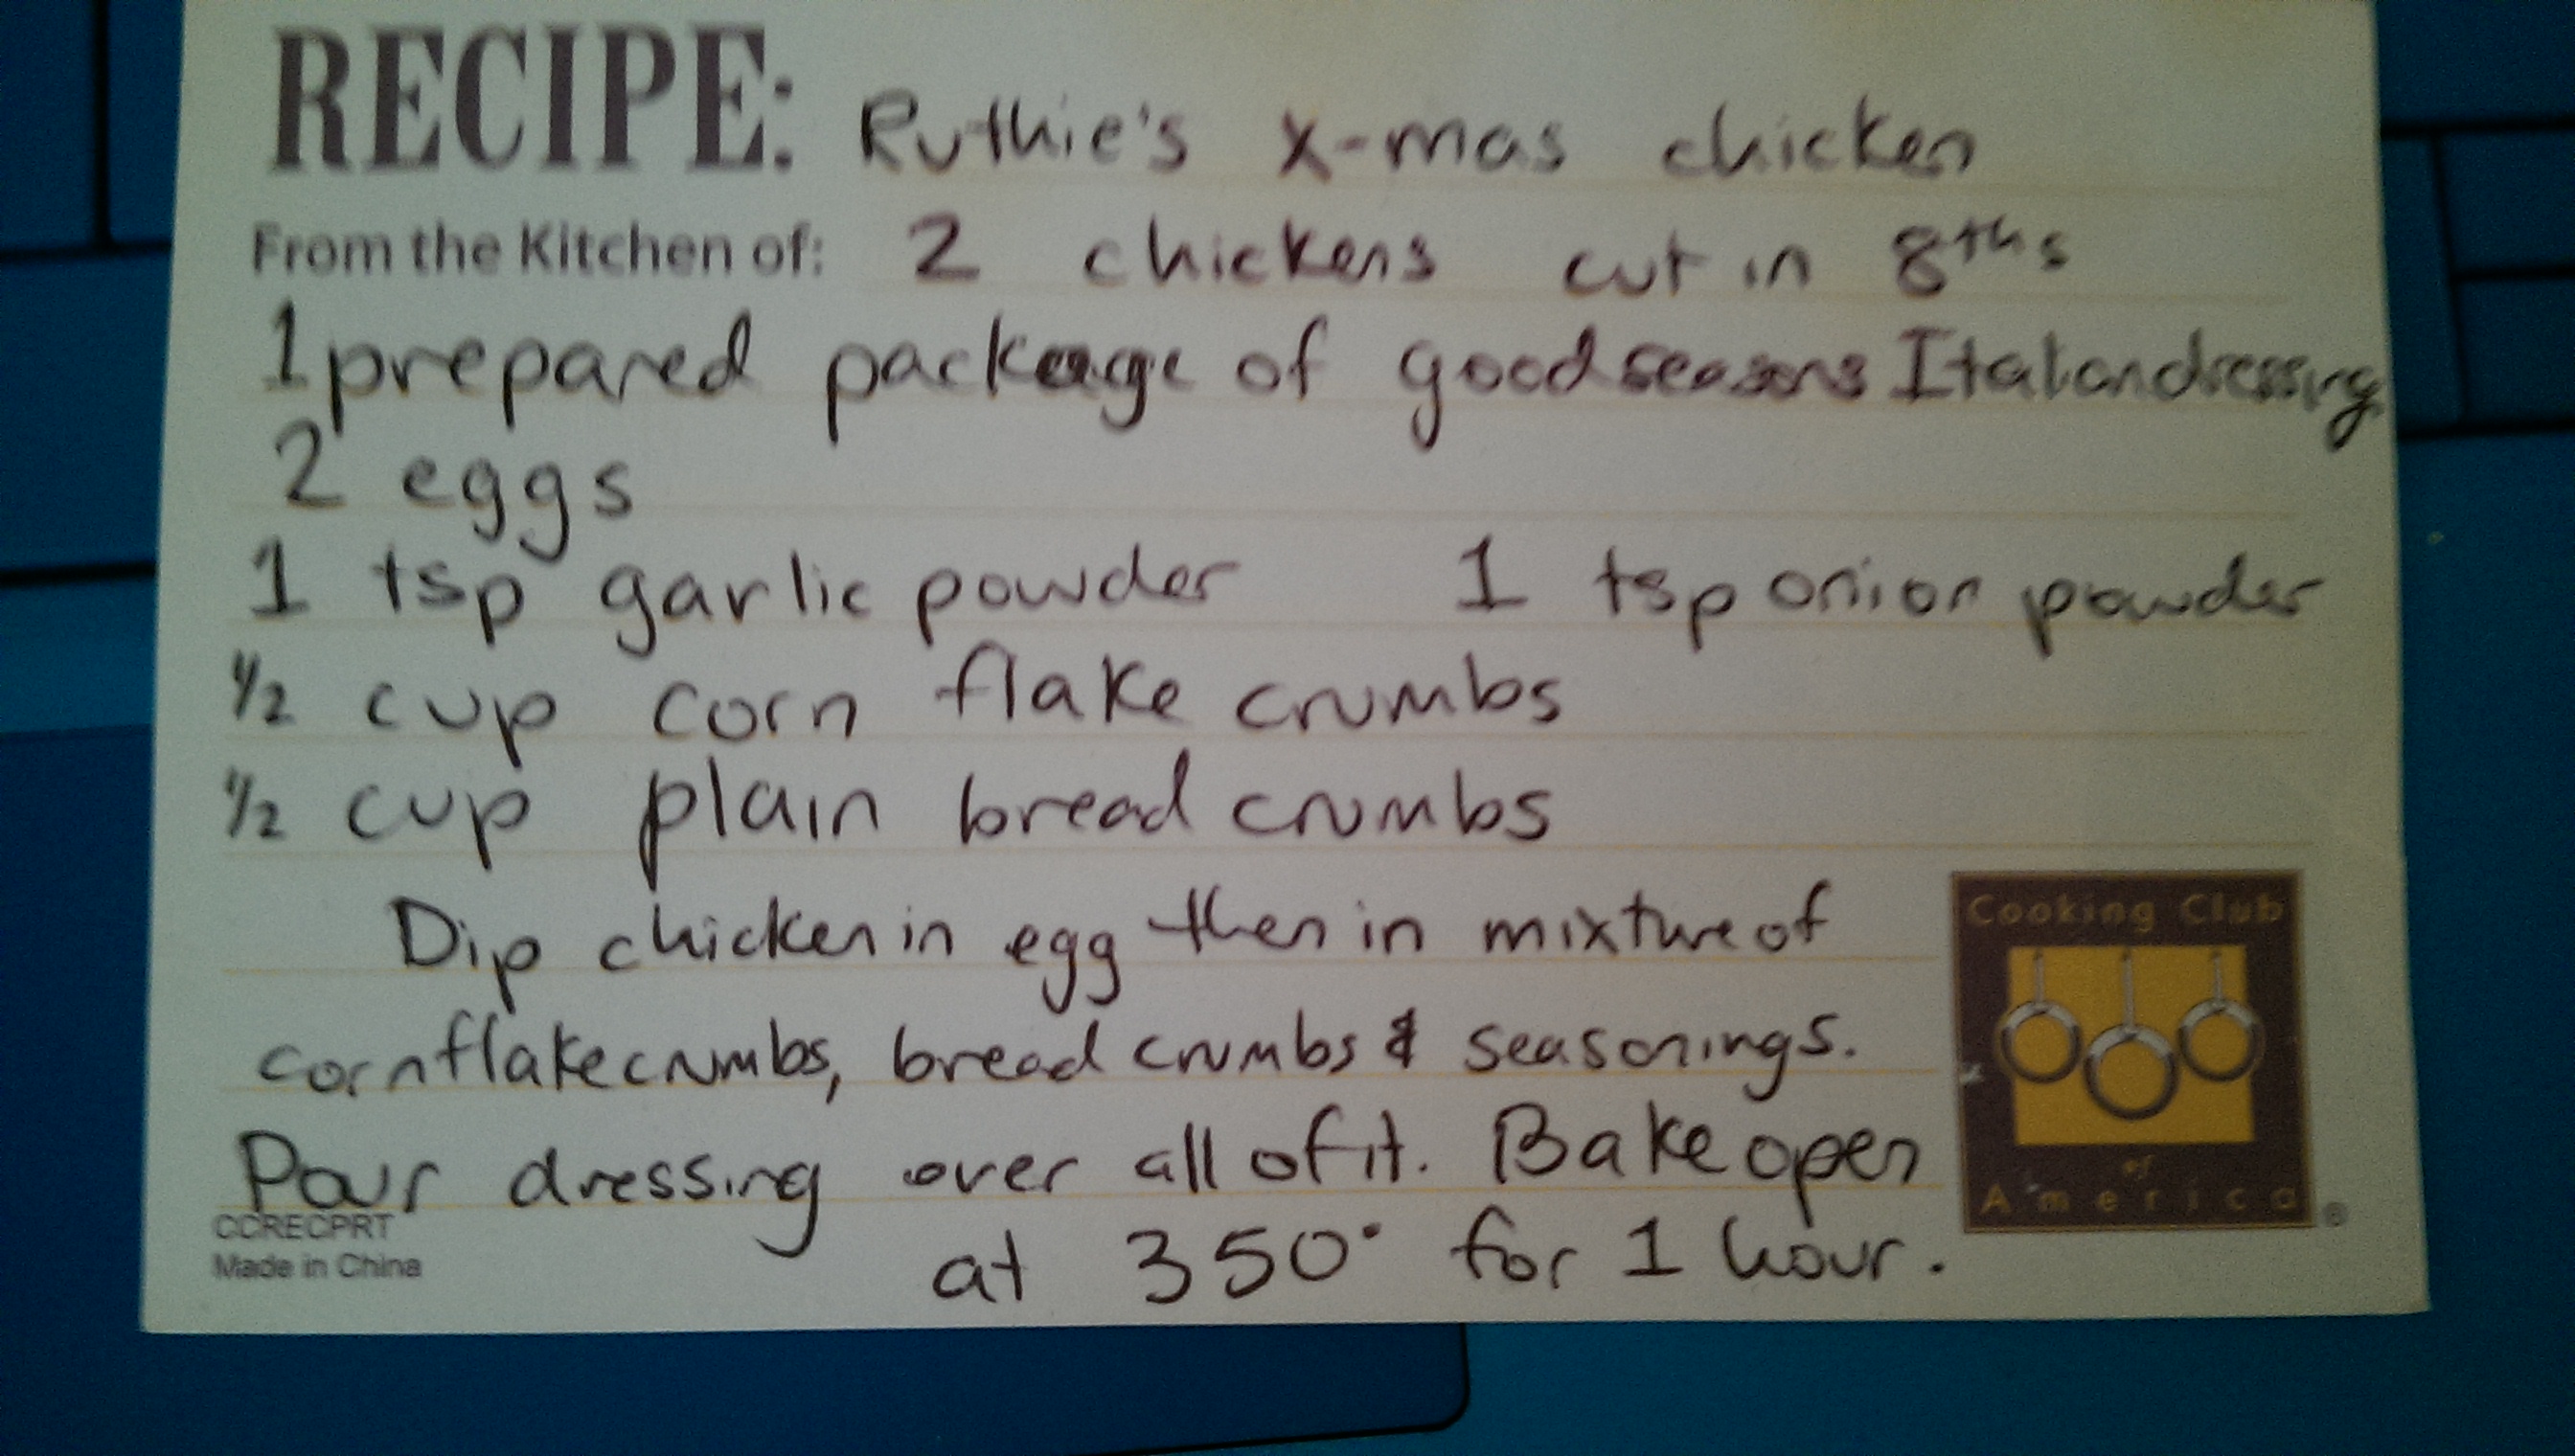 RECIPE: Ruthie's x-mas chicken
From the Kitchen of: 2 chickens cut in 8ths
1 prepared package of good seasons Italian dressing
2 eggs
1 tsp garlic powder 1 tsp onion powder
1/2 cup corn flake crumbs
1/2 cup plain bread crumbs
Dip chicken in egg then in mixture of
corn flake crumbs, bread crumbs & seasonings.
Pour dressing over all of it. Bake open
at 350° for 1 hour.
CCRECPRT
Made in China
Cooking Club
of
America
®